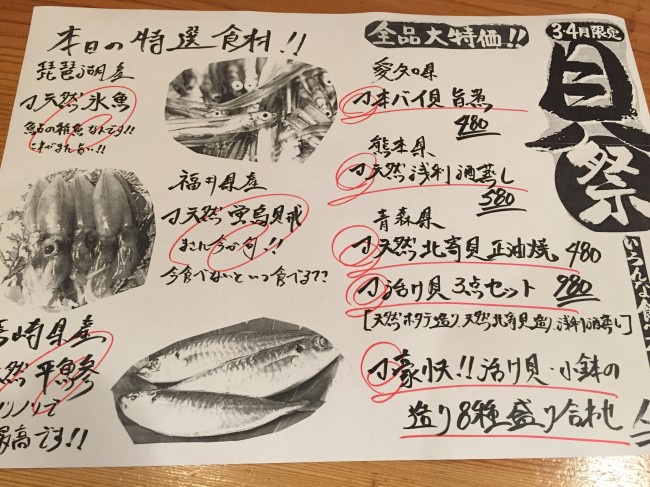 3・4月限定
貝祭
全品大特価!!
愛知県
本バイ貝 旨煮
480
熊本県
天然 浅利 酒蒸し
580
青森県
天然 北寄貝 正油焼 480
活け貝 3点セット 980
[天然ホタテ造り、天然北寄貝造り、浅利酒蒸し]
豪快!! 活け貝・小鉢の
造り8種盛り合わせ
本日の特選食材!!
琵琶湖産
天然 氷魚
鮎の稚魚なんです!!
これがまた旨い!!
福井県産
天然 蛍烏賊
まさに今が旬!!
今食べないといつ食べるの?
崎県産
然 平鯵
ノリノリで
最高です!!